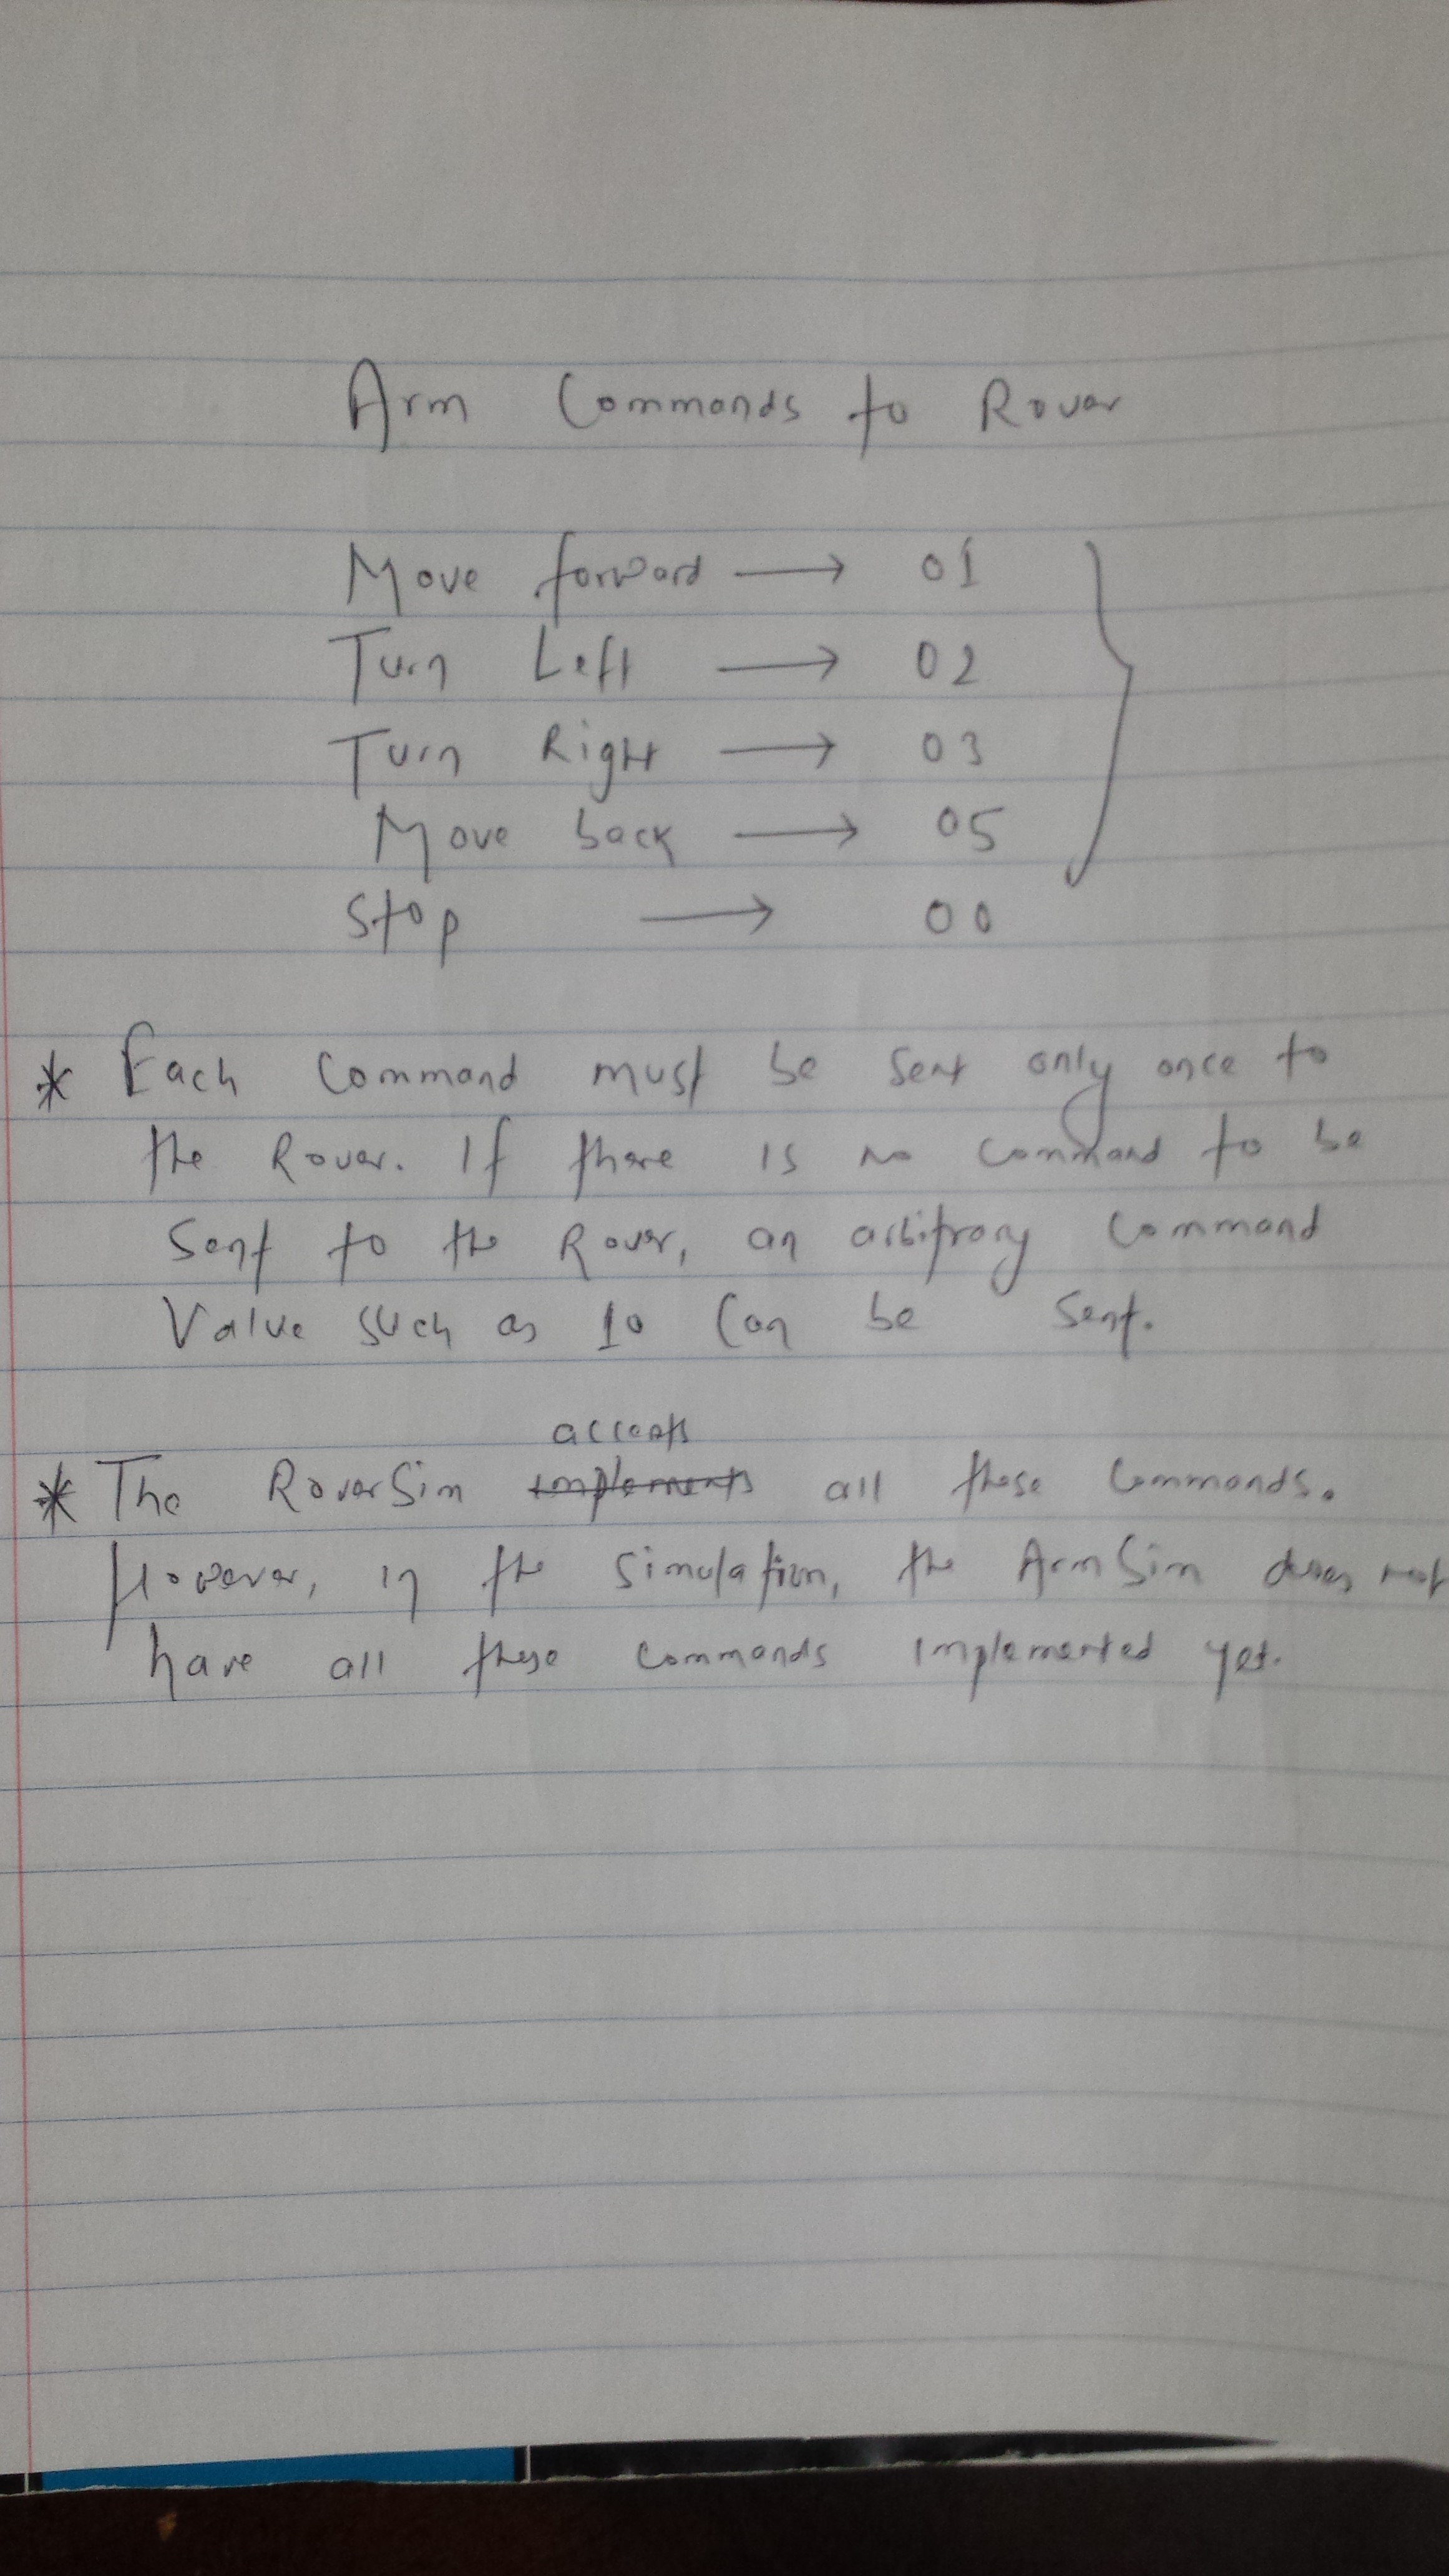 Arm Commands to Rover
Move forward → 01
Turn Left → 02
Turn Right → 03
Move back → 05
Stop → 00
* Each Command must be sent only once to
the Rover. If there is no command to be
Sent to the Rover, an arbitrary Command
Value such as 10 Can be sent.
accepts
* The RoverSim implements all these Commands.
However, in the simulation, the ArmSim does not
have all these commands implemented yet.